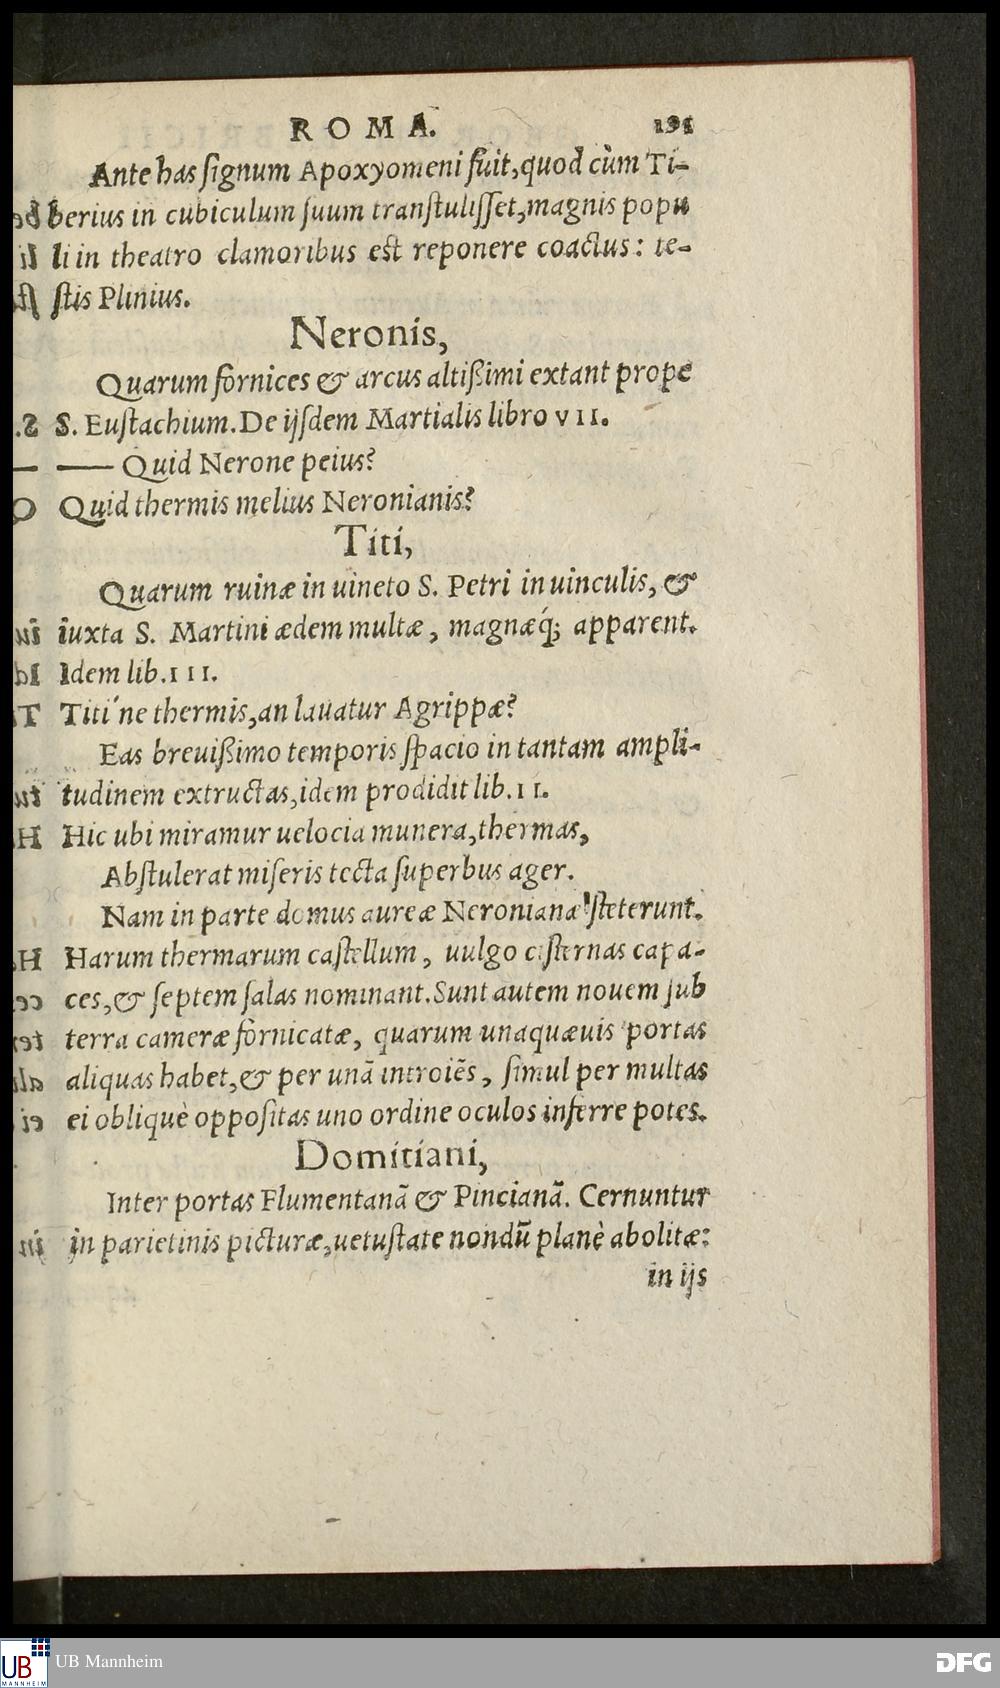 ROMA. 195
Ante has ſignum Apoxyomeni fuit, quod cùm Ti-
berius in cubiculum ſuum tranſtuliſſet, magnis popu
li in theatro clamoribus est reponere coactus: te-
ſtis Plinius.
Neronis,
Quarum fornices & arcus altißimi extant prope
S. Euſtachium. De ijſdem Martialis libro VII.
— Quid Nerone peius?
Quid thermis melius Neronianis?
Titi,
Quarum ruinæ in uineto S. Petri in uinculis, &
iuxta S. Martini ædem multæ, magnæq́; apparent.
Idem lib. III.
Titi'ne thermis, an lauatur Agrippæ?
Eas breuißimo temporis ſpacio in tantam ampli-
tudinem extructas, idem prodidit lib. II.
Hic ubi miramur uelocia munera, thermas,
Abſtulerat miſeris tecta ſuperbus ager.
Nam in parte domus aureæ Neronianæ ſteterunt.
Harum thermarum caſtellum, uulgo ciſternas capa-
ces, & ſeptem ſalas nominant. Sunt autem nouem ſub
terra cameræ fornicatæ, quarum unaquæuis portas
aliquas habet, & per unā introiēs, ſimul per multas
ei obliquè oppoſitas uno ordine oculos inferre potes.
Domitiani,
Inter portas Flumentanā & Pincianā. Cernuntur
in parietinis picturæ, uetuſtate nondū planè abolitæ:
in ijs
UB Mannheim
UB
MANNHEIM
DFG